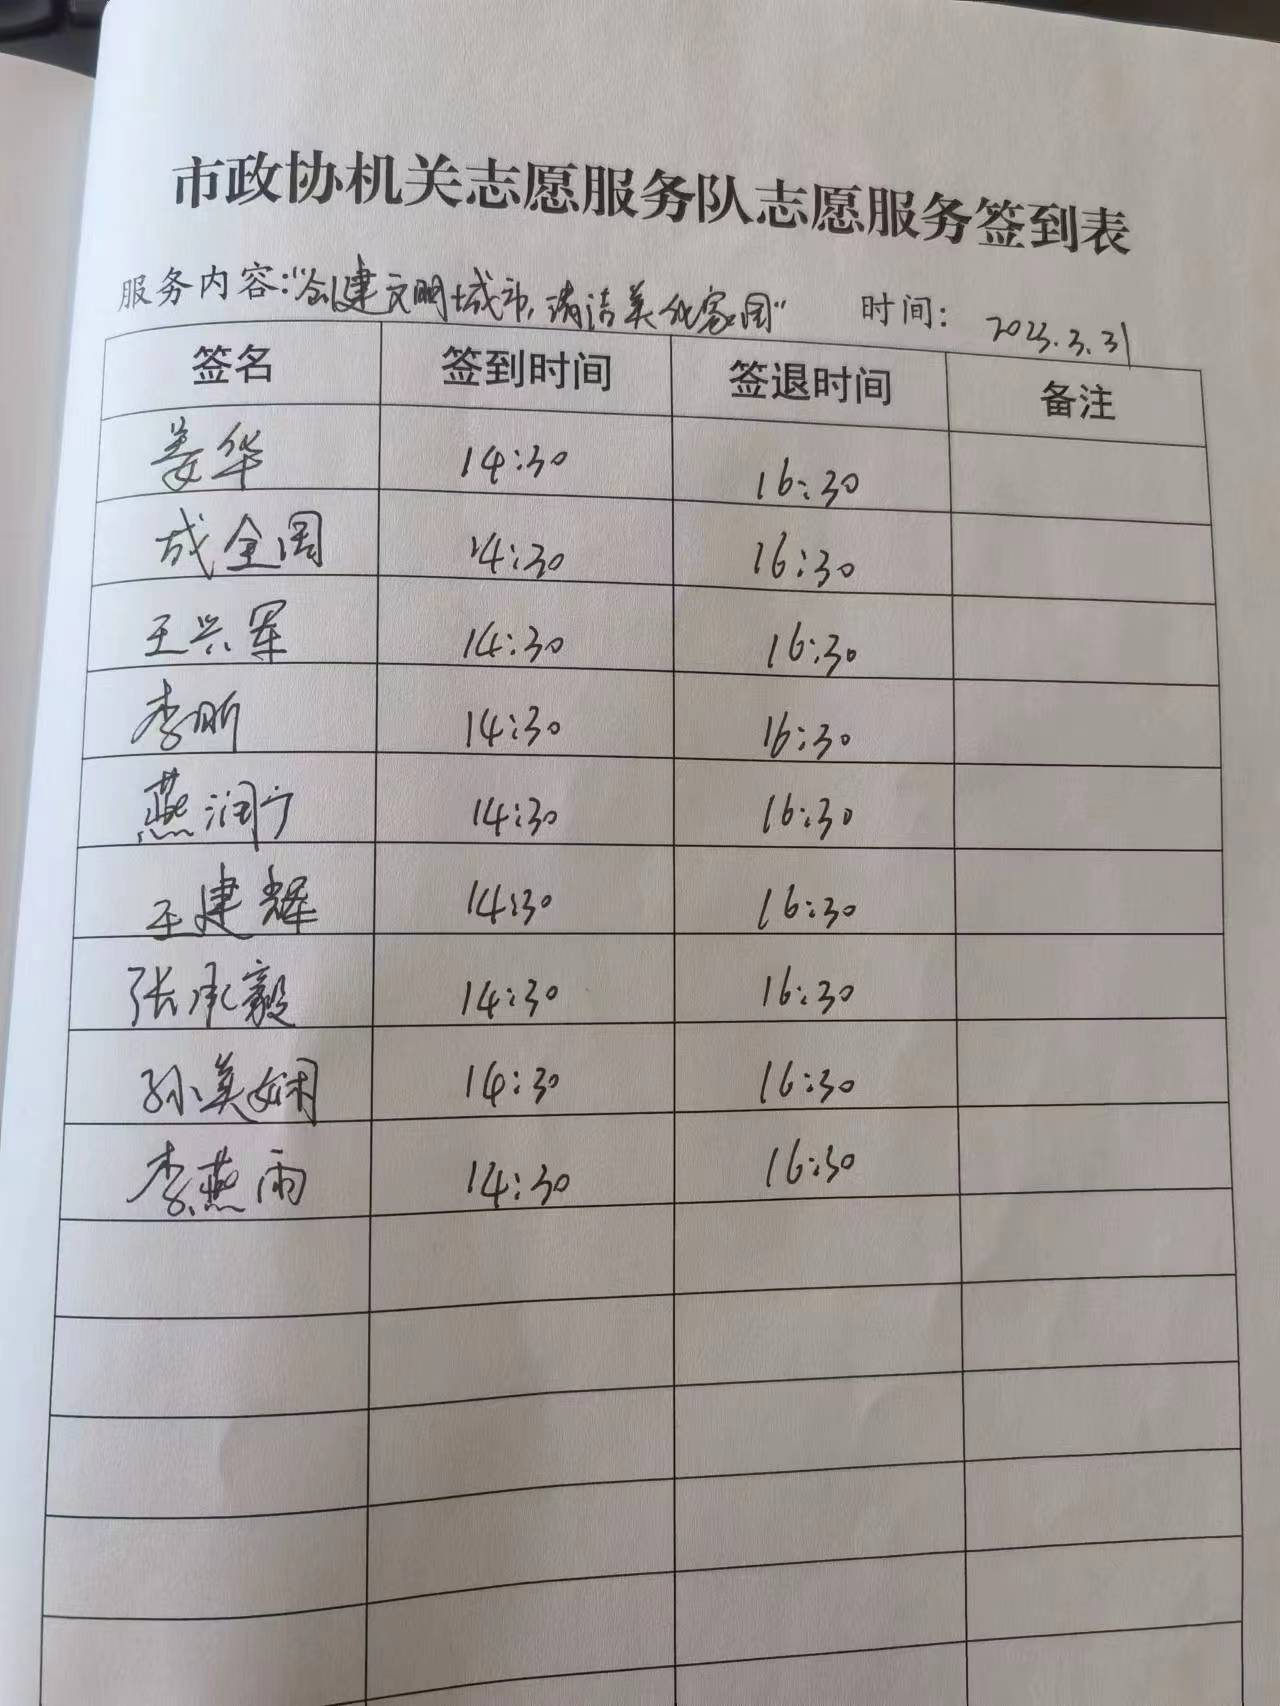 市政协机关志愿服务队志愿服务签到表
服务内容:"创建文明城市,清洁美化家园" 时间: 2023.3.31
签名 签到时间 签退时间 备注
姜华 14:30 16:30
成全周 14:30 16:30
王兴军 14:30 16:30
李昕 14:30 16:30
燕润宁 14:30 16:30
王建辉 14:30 16:30
张承毅 14:30 16:30
孙美娴 14:30 16:30
李燕雨 14:30 16:30